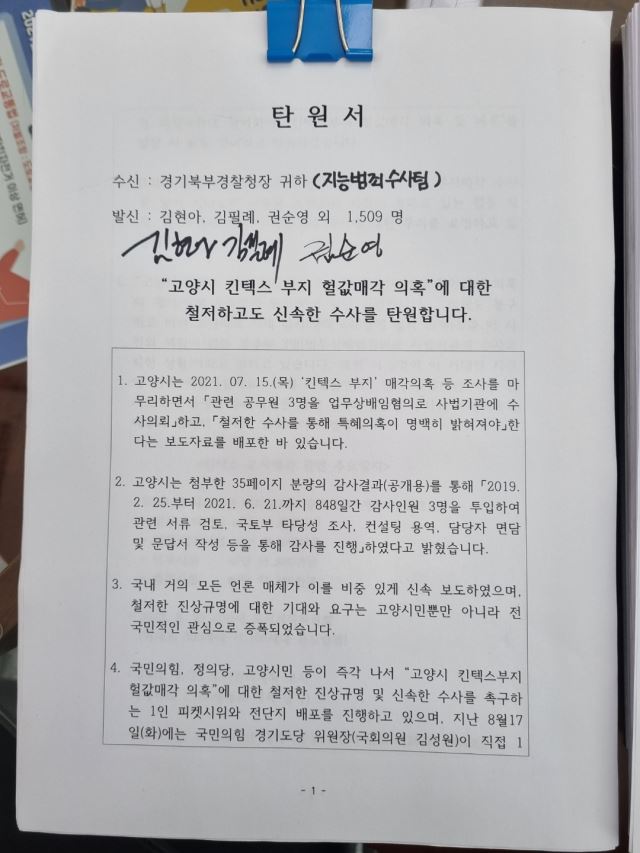 탄 원 서
수신 : 경기북부경찰청장 귀하 (지능범죄수사팀)
발신 : 김현아, 김필례, 권순영 외 1,509 명
김현아 김필례 권순영
“고양시 킨텍스 부지 헐값매각 의혹”에 대한
철저하고도 신속한 수사를 탄원합니다.
1. 고양시는 2021. 07. 15.(목) ‘킨텍스 부지’ 매각의혹 등 조사를 마
무리하면서 「관련 공무원 3명을 업무상배임혐의로 사법기관에 수
사의뢰」하고, 「철저한 수사를 통해 특혜의혹이 명백히 밝혀져야」한
다는 보도자료를 배포한 바 있습니다.
2. 고양시는 첨부한 35페이지 분량의 감사결과(공개용)를 통해 「2019.
2. 25.부터 2021. 6. 21.까지 848일간 감사인원 3명을 투입하여
관련 서류 검토, 국토부 타당성 조사, 컨설팅 용역, 담당자 면담
및 문답서 작성 등을 통해 감사를 진행」하였다고 밝혔습니다.
3. 국내 거의 모든 언론 매체가 이를 비중 있게 신속 보도하였으며,
철저한 진상규명에 대한 기대와 요구는 고양시민뿐만 아니라 전
국민적인 관심으로 증폭되었습니다.
4. 국민의힘, 정의당, 고양시민 등이 즉각 나서 “고양시 킨텍스부지
헐값매각 의혹”에 대한 철저한 진상규명 및 신속한 수사를 촉구하
는 1인 피켓시위와 전단지 배포를 진행하고 있으며, 지난 8월17
일(화)에는 국민의힘 경기도당 위원장(국회의원 김성원)이 직접 1
- 1 -